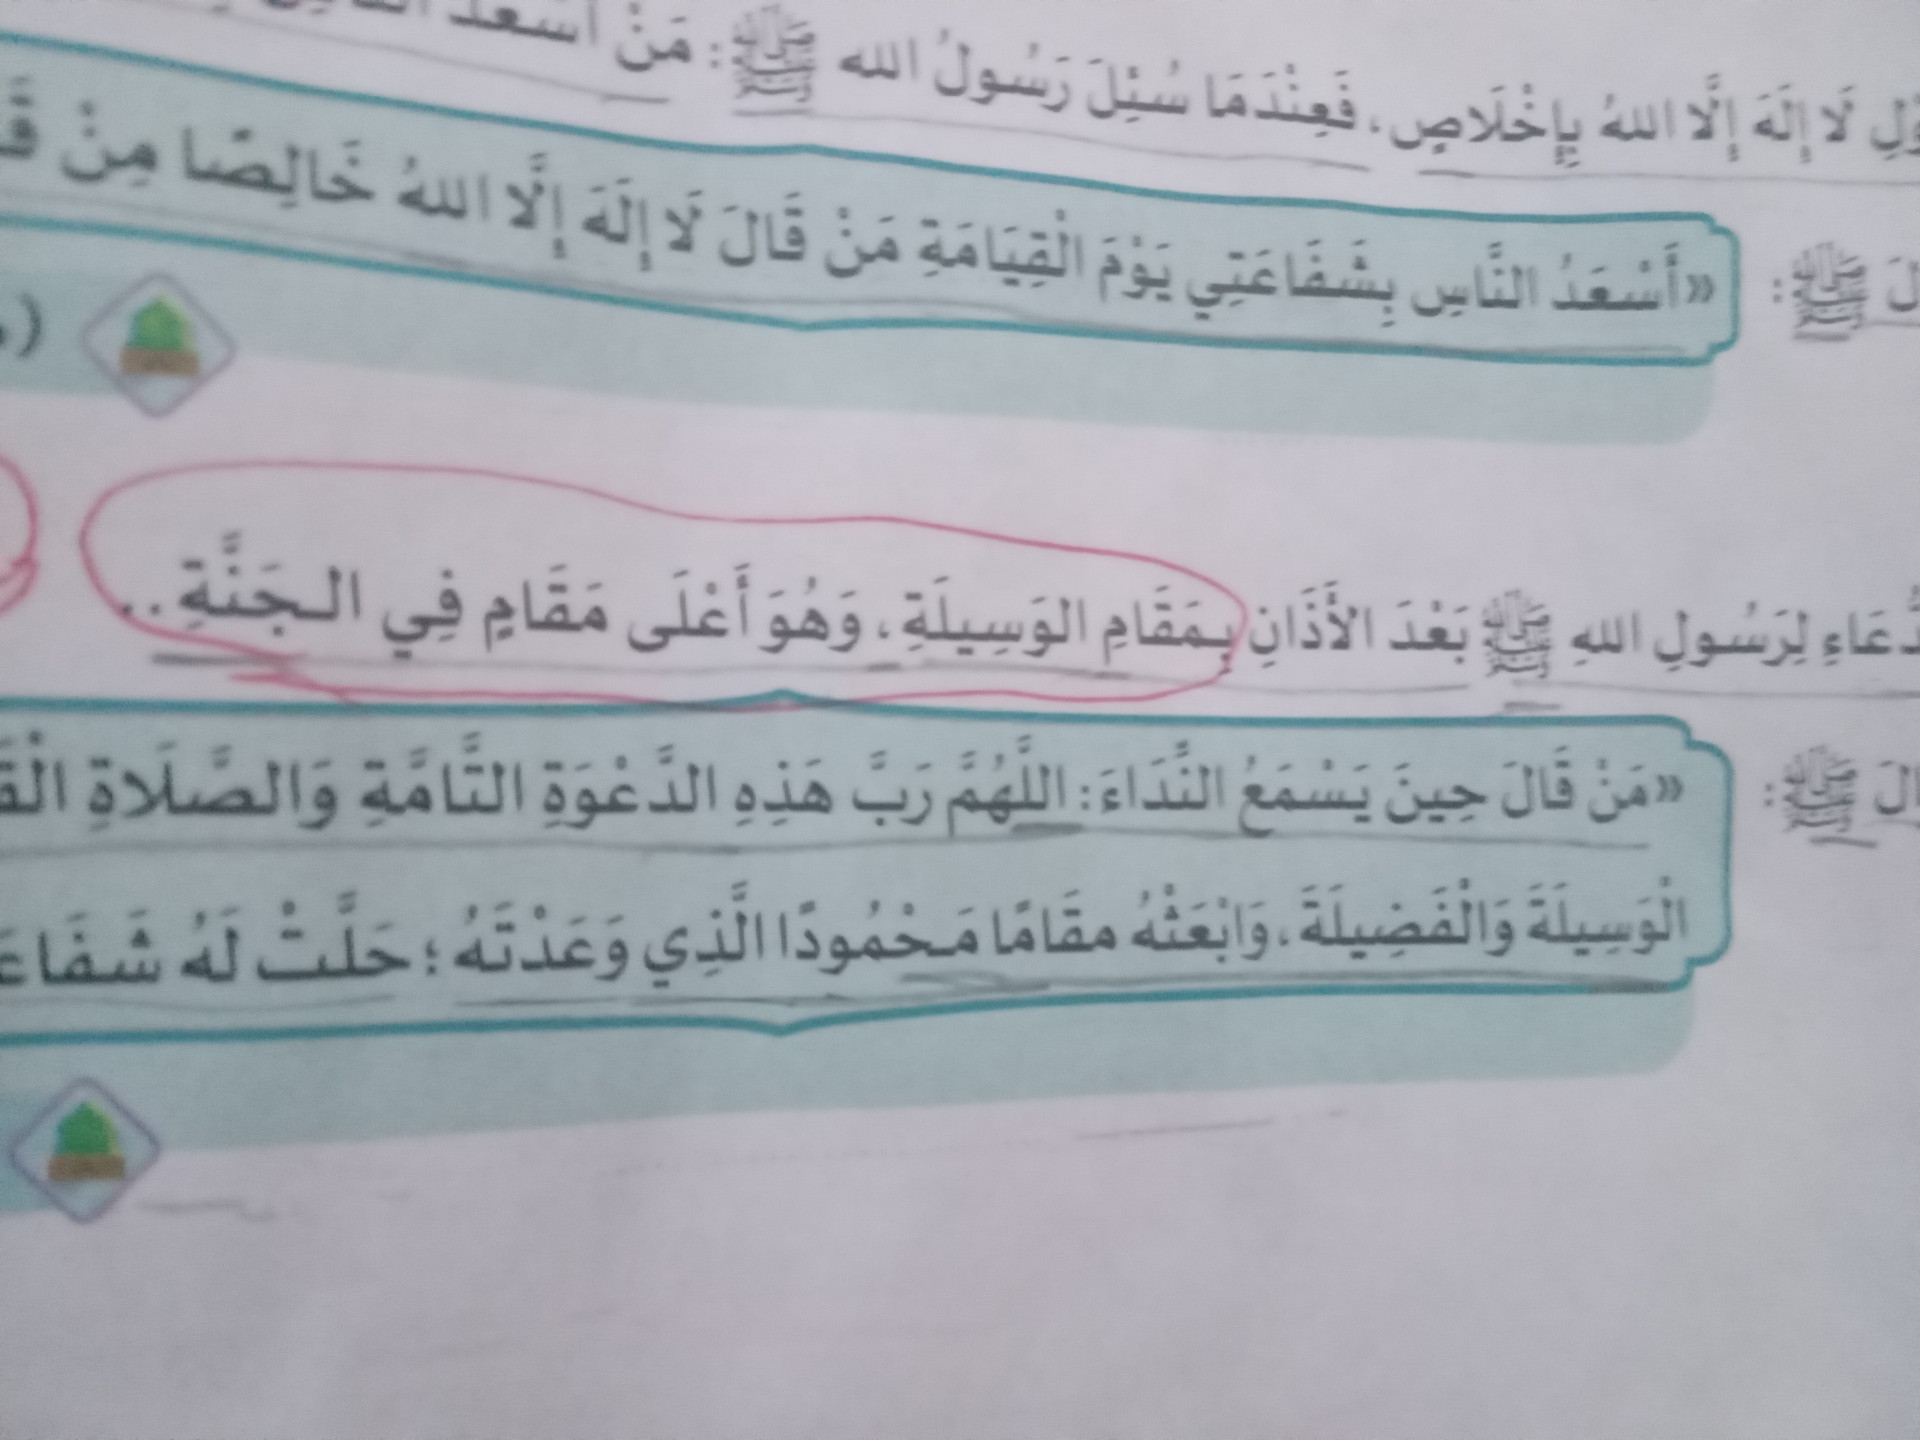 لَا إِلَهَ إِلَّا اللهُ بِإِخْلَاصٍ، فَعِنْدَمَا سُئِلَ رَسُولُ الله ﷺ: مَنْ أَسْعَدُ
ﷺ: «أَسْعَدُ النَّاسِ بِشَفَاعَتِي يَوْمَ الْقِيَامَةِ مَنْ قَالَ لَا إِلَهَ إِلَّا اللهُ خَالِصًا مِنْ
لِرَسُولِ اللهِ ﷺ بَعْدَ الأَذَانِ بِمَقَامِ الوَسِيلَةِ، وَهُوَ أَعْلَى مَقَامٍ فِي الجَنَّةِ..
ﷺ: «مَنْ قَالَ حِينَ يَسْمَعُ النِّدَاءَ: اللَّهُمَّ رَبَّ هَذِهِ الدَّعْوَةِ التَّامَّةِ وَالصَّلَاةِ
الْوَسِيلَةَ وَالْفَضِيلَةَ، وَابْعَثْهُ مقَامًا مَحْمُودًا الَّذِي وَعَدْتَهُ؛ حَلَّتْ لَهُ